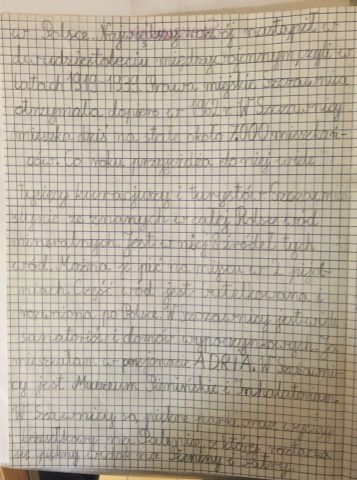 w Polsce. Największy rozwój nastąpił w
dwudziestoleciu międzywojennym, czyli w
latach 1919-1939. Prawa miejskie Szczawnica
otrzymała dopiero w 1962 r. W Szczawnicy
mieszka dziś na stałe około 7.000 mieszkań-
ców. Co roku przyjeżdża do niej wiele
tysięcy kuracjuszy i turystów. Szczawnica
słynie ze znanych w całej Polsce wód
mineralnych. Jest w niej źródeł tych
wód. Można je pić na miejscu w 2 pijal-
niach. Część wód jest butelkowana i
rozwożona po Polsce. W Szczawnicy jest wiele
sanatoriów i domów wypoczynkowych. Ja
mieszkałam w pensjonacie ADRIA. W Szczawni-
cy jest Muzeum Pienińskie i Inhalatorium.
W Szczawnicy są piękne parki oraz wyciąg
krzesełkowy na Palenicę, z której roztacza
się piękny widok na Pieniny i Tatry.